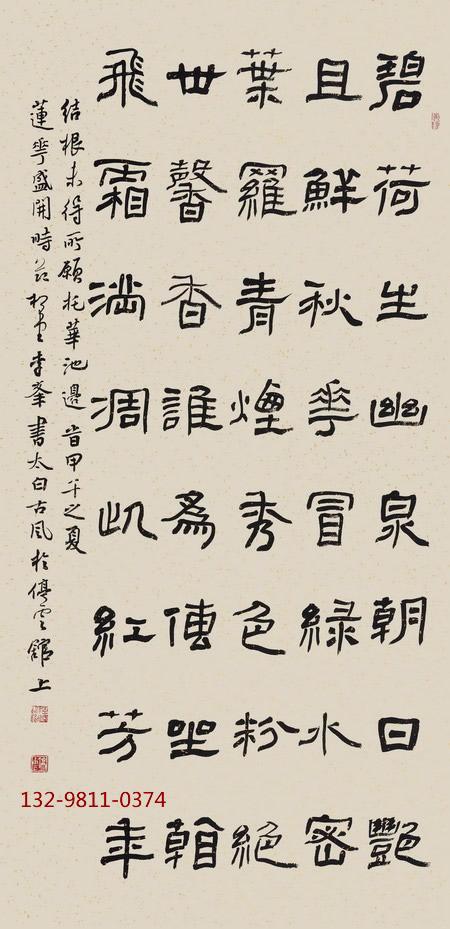 碧荷生幽泉朝日艷
且鮮秋華冒綠水密
葉羅青煙秀色粉絕
世馨香誰為傳坐看
飛霜滿凋此紅芳年
結根未得所願托華池邊旹甲午之夏
蓮華盛開時李峯書太白古風於停雲館上
132-9811-0374